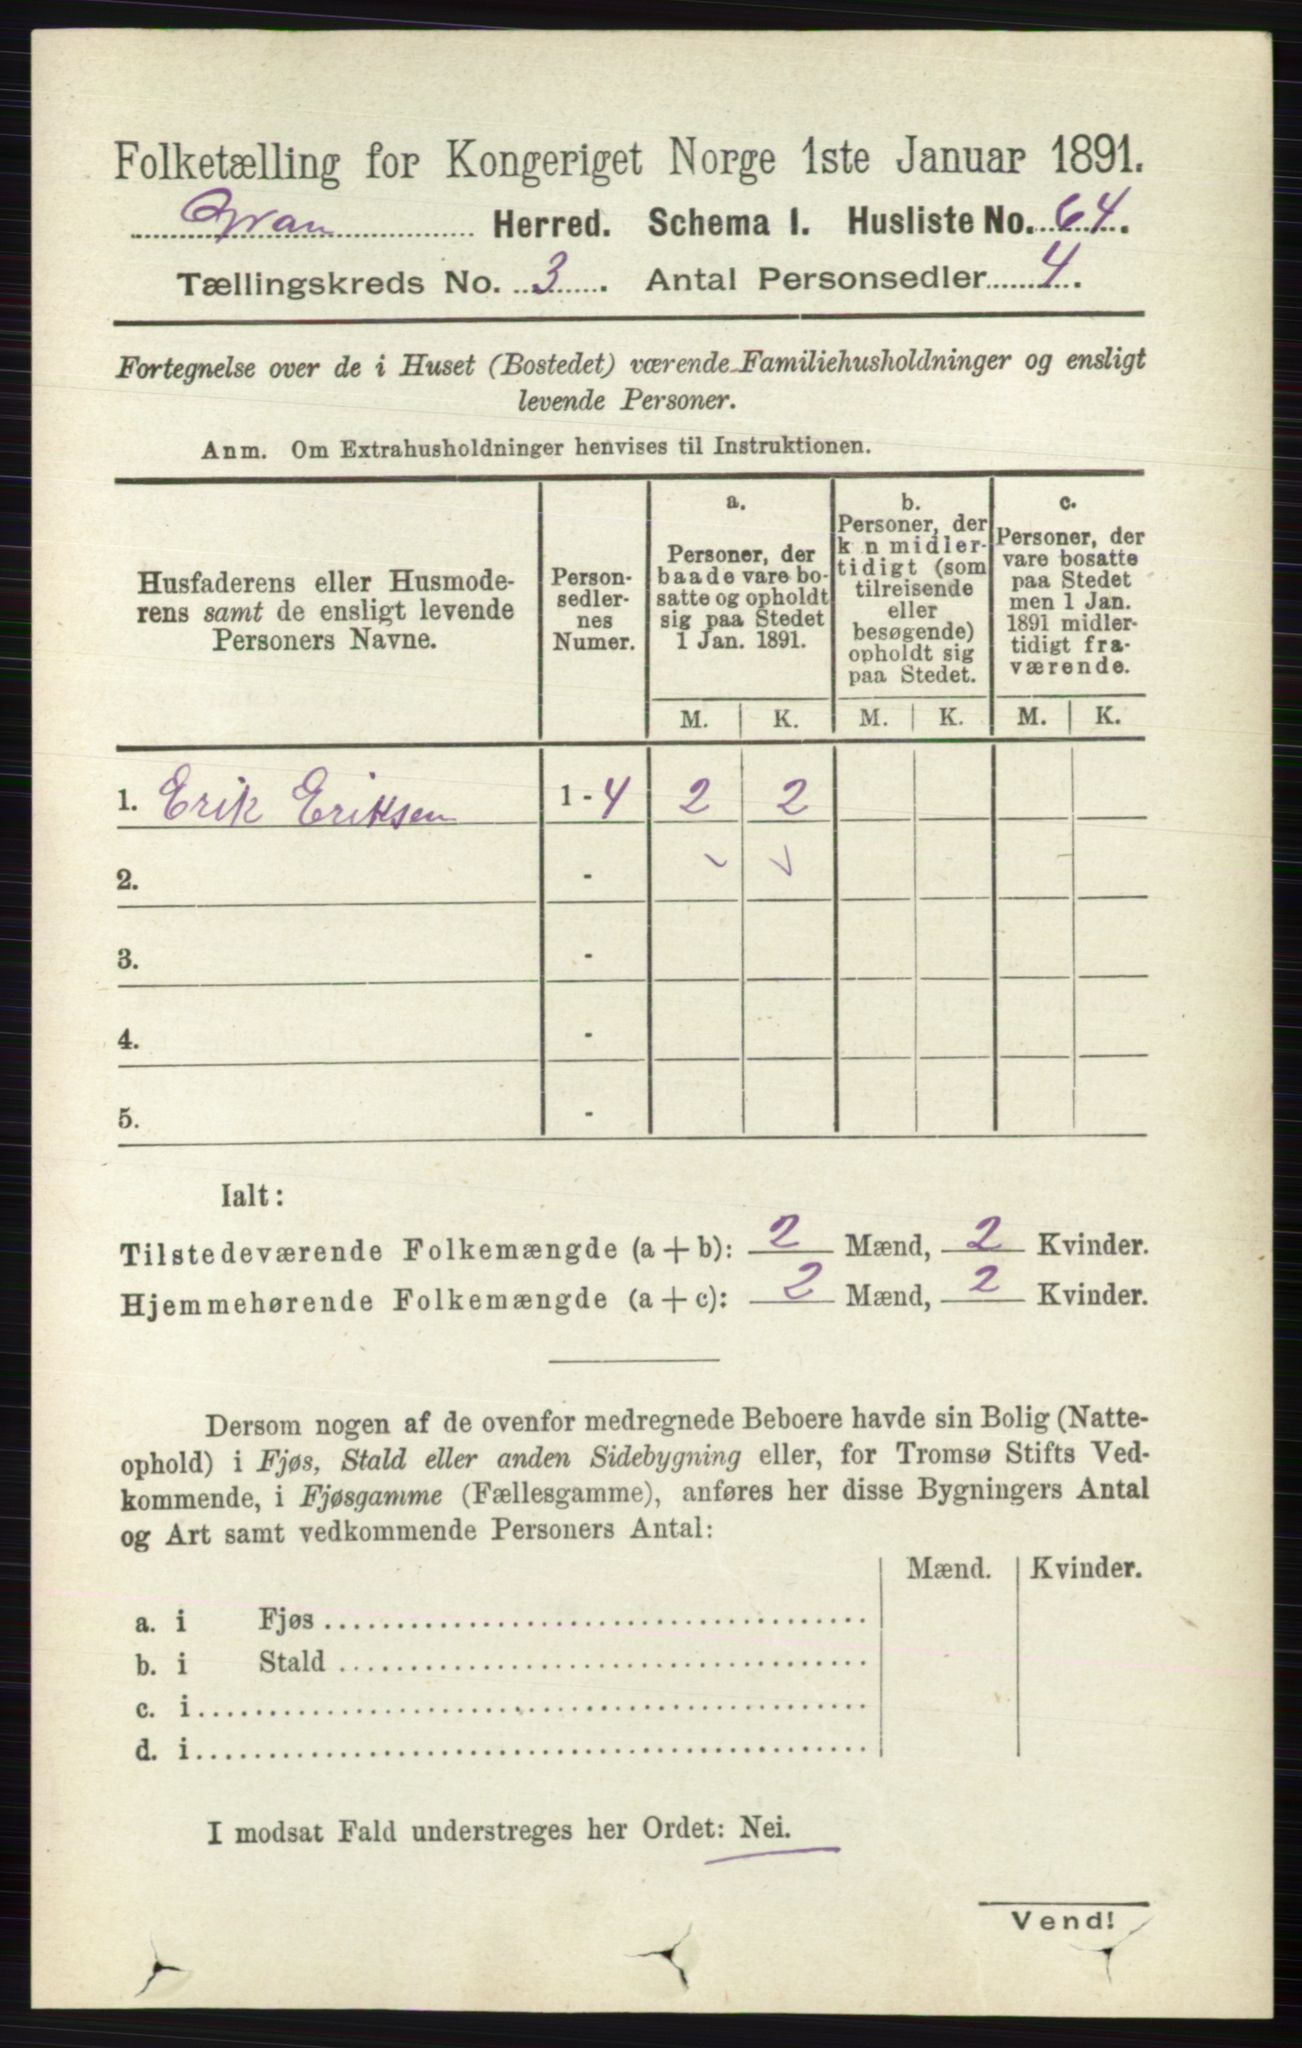 Folketælling for Kongeriget Norge 1ste Januar 1891.
Gran Herred. Schema I. Husliste No. 64.
Tællingskreds No. 3. Antal Personsedler 4.
Fortegnelse over de i Huset (Bostedet) værende Familiehusholdninger og ensligt
levende Personer.
Anm. Om Extrahusholdninger henvises til Instruktionen.
Husfaderens eller Husmode-
rens samt de ensligt levende
Personers Navne.
Person-
sedler-
nes
Numer.
a.
Personer, der
baade vare bo-
satte og opholdt
sig paa Stedet
1 Jan. 1891.
b.
Personer, der
k n midler-
tidigt (som
tilreisende
eller
besøgende)
opholdt sig
paa Stedet.
c.
Personer, der
vare bosatte
paa Stedet
men 1 Jan.
1891 midler-
tidigt fra-
værende.
M. K. M. K. M. K.
1. Erik Eriksen 1 - 4 2 2
2. -
3. -
4. -
5. -
Ialt:
Tilstedeværende Folkemængde (a + b): 2 Mænd, 2 Kvinder.
Hjemmehørende Folkemængde (a + c): 2 Mænd, 2 Kvinder.
Dersom nogen af de ovenfor medregnede Beboere havde sin Bolig (Natte-
ophold) i Fjøs, Stald eller anden Sidebygning eller, for Tromsø Stifts Ved-
kommende, i Fjøsgamme (Fællesgamme), anføres her disse Bygningers Antal
og Art samt vedkommende Personers Antal:
Mænd. Kvinder.
a. i Fjøs
b. i Stald
c. i
d. i
I modsat Fald understreges her Ordet: Nei.
Vend!